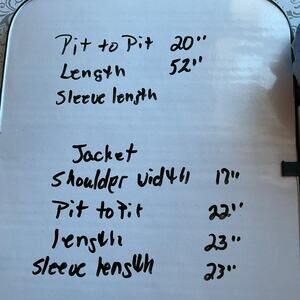 Pit to Pit 20"
Length 52"
Sleeve length
Jacket
Shoulder width 17"
Pit to Pit 22"
length 23"
Sleeve length 23"